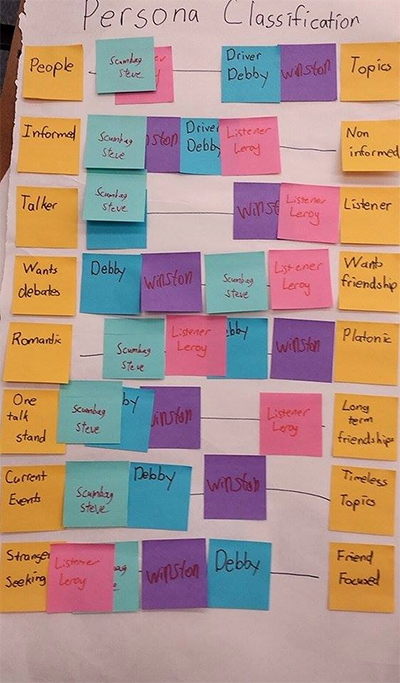 Persona Classification
People
Scumbag
Steve
Driver
Debby
Winston
Topics
Informed
Scumbag
Steve
nston
Driver
Debb
Listener
Leroy
Non
informed
Talker
Scumbag
Steve
Winst
Listener
Leroy
Listener
Wants
debates
Debby
Winston
Scumbag
Steve
Listener
Leroy
Wants
friendship
Romantic
Scumbag
Steve
Listener
Leroy
bby
Winston
Platonic
One
talk
stand
Scumbag
Steve
by
Winston
Listener
Leroy
Long
term
friendships
Current
Events
Scumbag
Steve
Debby
Winston
Timeless
Topics
Stranger
Seeking
Listener
Leroy
Winston
Debby
Friend
Focused